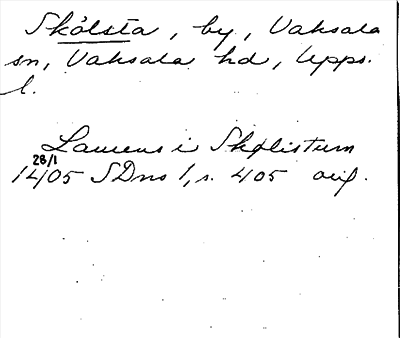 Skölsta, by, Vaksala
sn, Vaksala hd, Upps.
l.
Laurens i Skølistum
28/1
1405 SDns 1, s. 405 orig.